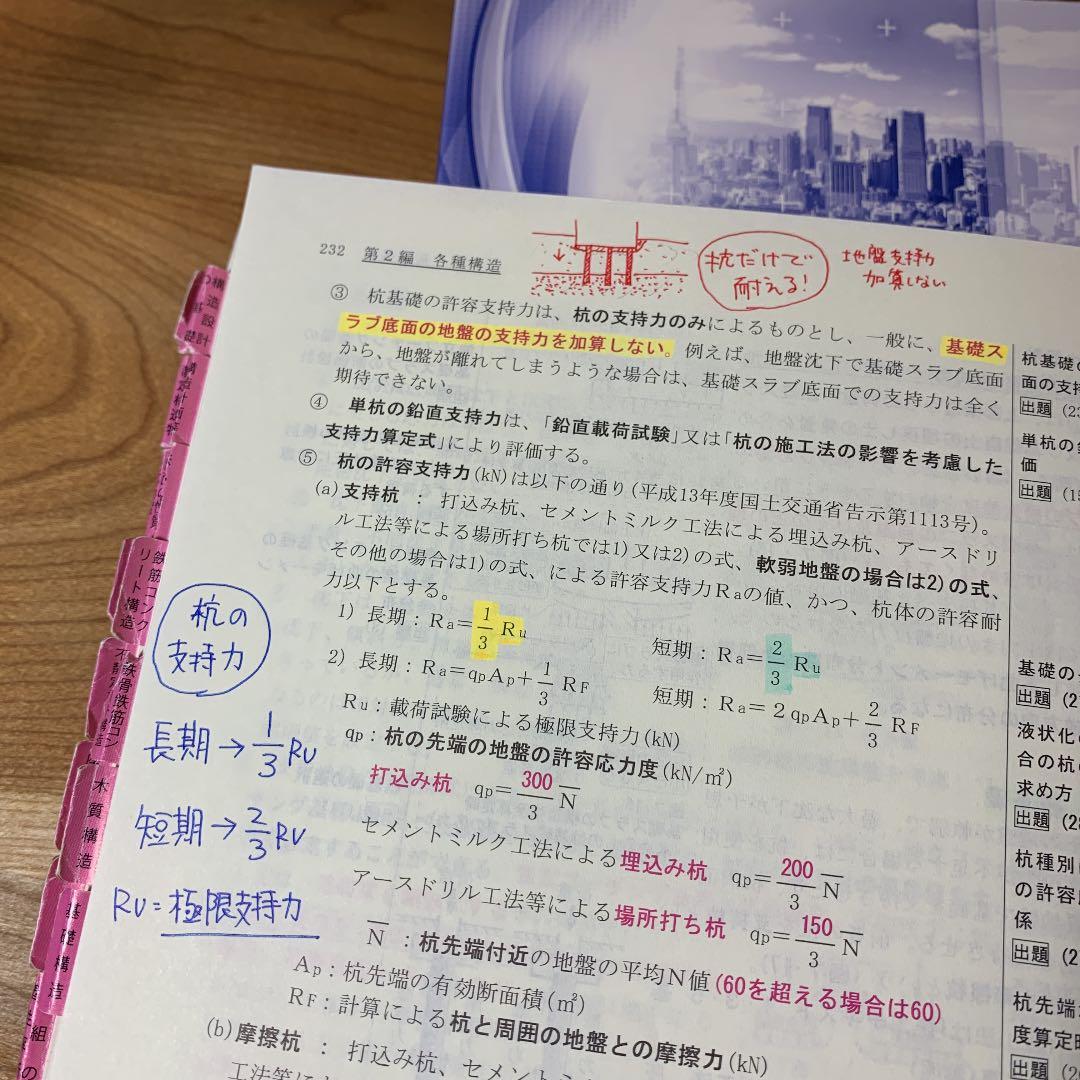 232 第2編 各種構造
杭だけで
耐える!
地盤支持力
加算しない
③ 杭基礎の許容支持力は、杭の支持力のみによるものとし、一般に、基礎ス
ラブ底面の地盤の支持力を加算しない。例えば、地盤沈下で基礎スラブ底面
から、地盤が離れてしまうような場合は、基礎スラブ底面での支持力は全く
期待できない。
④ 単杭の鉛直支持力は、「鉛直載荷試験」又は「杭の施工法の影響を考慮した
支持力算定式」により評価する。
⑤ 杭の許容支持力(kN)は以下の通り(平成13年度国土交通省告示第1113号)。
(a)支持杭 : 打込み杭、セメントミルク工法による埋込み杭、アースドリ
ル工法等による場所打ち杭では1)又は2)の式、軟弱地盤の場合は2)の式、
その他の場合は1)の式、による許容支持力Raの値、かつ、杭体の許容耐
力以下とする。
1) 長期:Ra=1/3 Ru 短期:Ra=2/3 Ru
2) 長期:Ra=qpAp+1/3 RF 短期:Ra=2qpAp+2/3 RF
Ru:載荷試験による極限支持力(kN)
qp:杭の先端の地盤の許容応力度(kN/㎡)
打込み杭 qp=300/3 N̅
セメントミルク工法による埋込み杭 qp=200/3 N̅
アースドリル工法等による場所打ち杭 qp=150/3 N̅
N̅:杭先端付近の地盤の平均N値(60を超える場合は60)
Ap:杭先端の有効断面積(㎡)
RF:計算による杭と周囲の地盤との摩擦力(kN)
(b)摩擦杭 : 打込み杭、セメ
工法等に
杭の
支持力
長期→1/3 Ru
短期→2/3 Ru
Ru=極限支持力
杭基礎の
面の支持
出題
単杭の
価
出題
基礎の
出題
液状化の
合の杭の
求め方
出題
杭種別
の許容
係
出題
杭先端
度算定
出題
構造設計
鉄筋コンク
リート構造
鉄骨鉄筋コン
木質構造
基礎構造